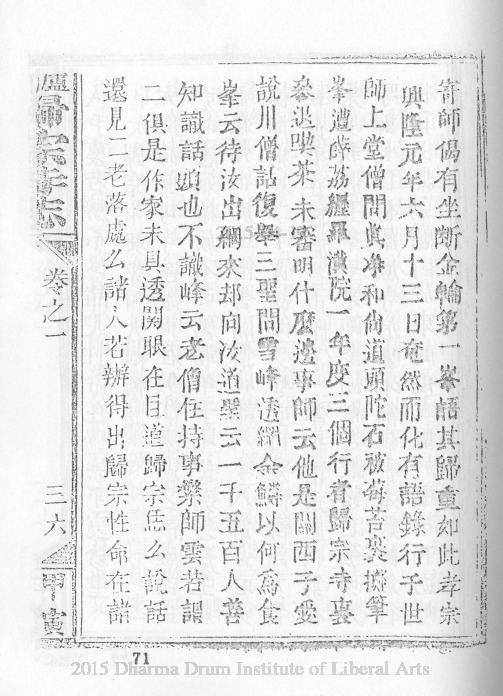 寄師偈有坐斷金輪第一峯語其歸重如此孝宗
興隆元年六月十三日奄然而化有語錄行于世
師上堂僧問眞淨和尚道頭陀石被莓苔裏擲筆
峯遭薜荔纏羅漢院一年度三個行者歸宗寺裏
參退喫茶未審明什麼邊事師云他是關西子愛
說川僧話復舉三聖問雪峰透網金鱗以何爲食
峯云待汝出網來却向汝道聖云一千五百人善
知識話頭也不識峰云老僧住持事繁師雲若謂
二俱是作家未具透關眼在且道歸宗恁么說話
還見二老落處么諸人若辦得出歸宗性命在諸
廬 歸宗寺志 卷之一 三六 甲寅
71
2015 Dharma Drum Institute of Liberal Arts